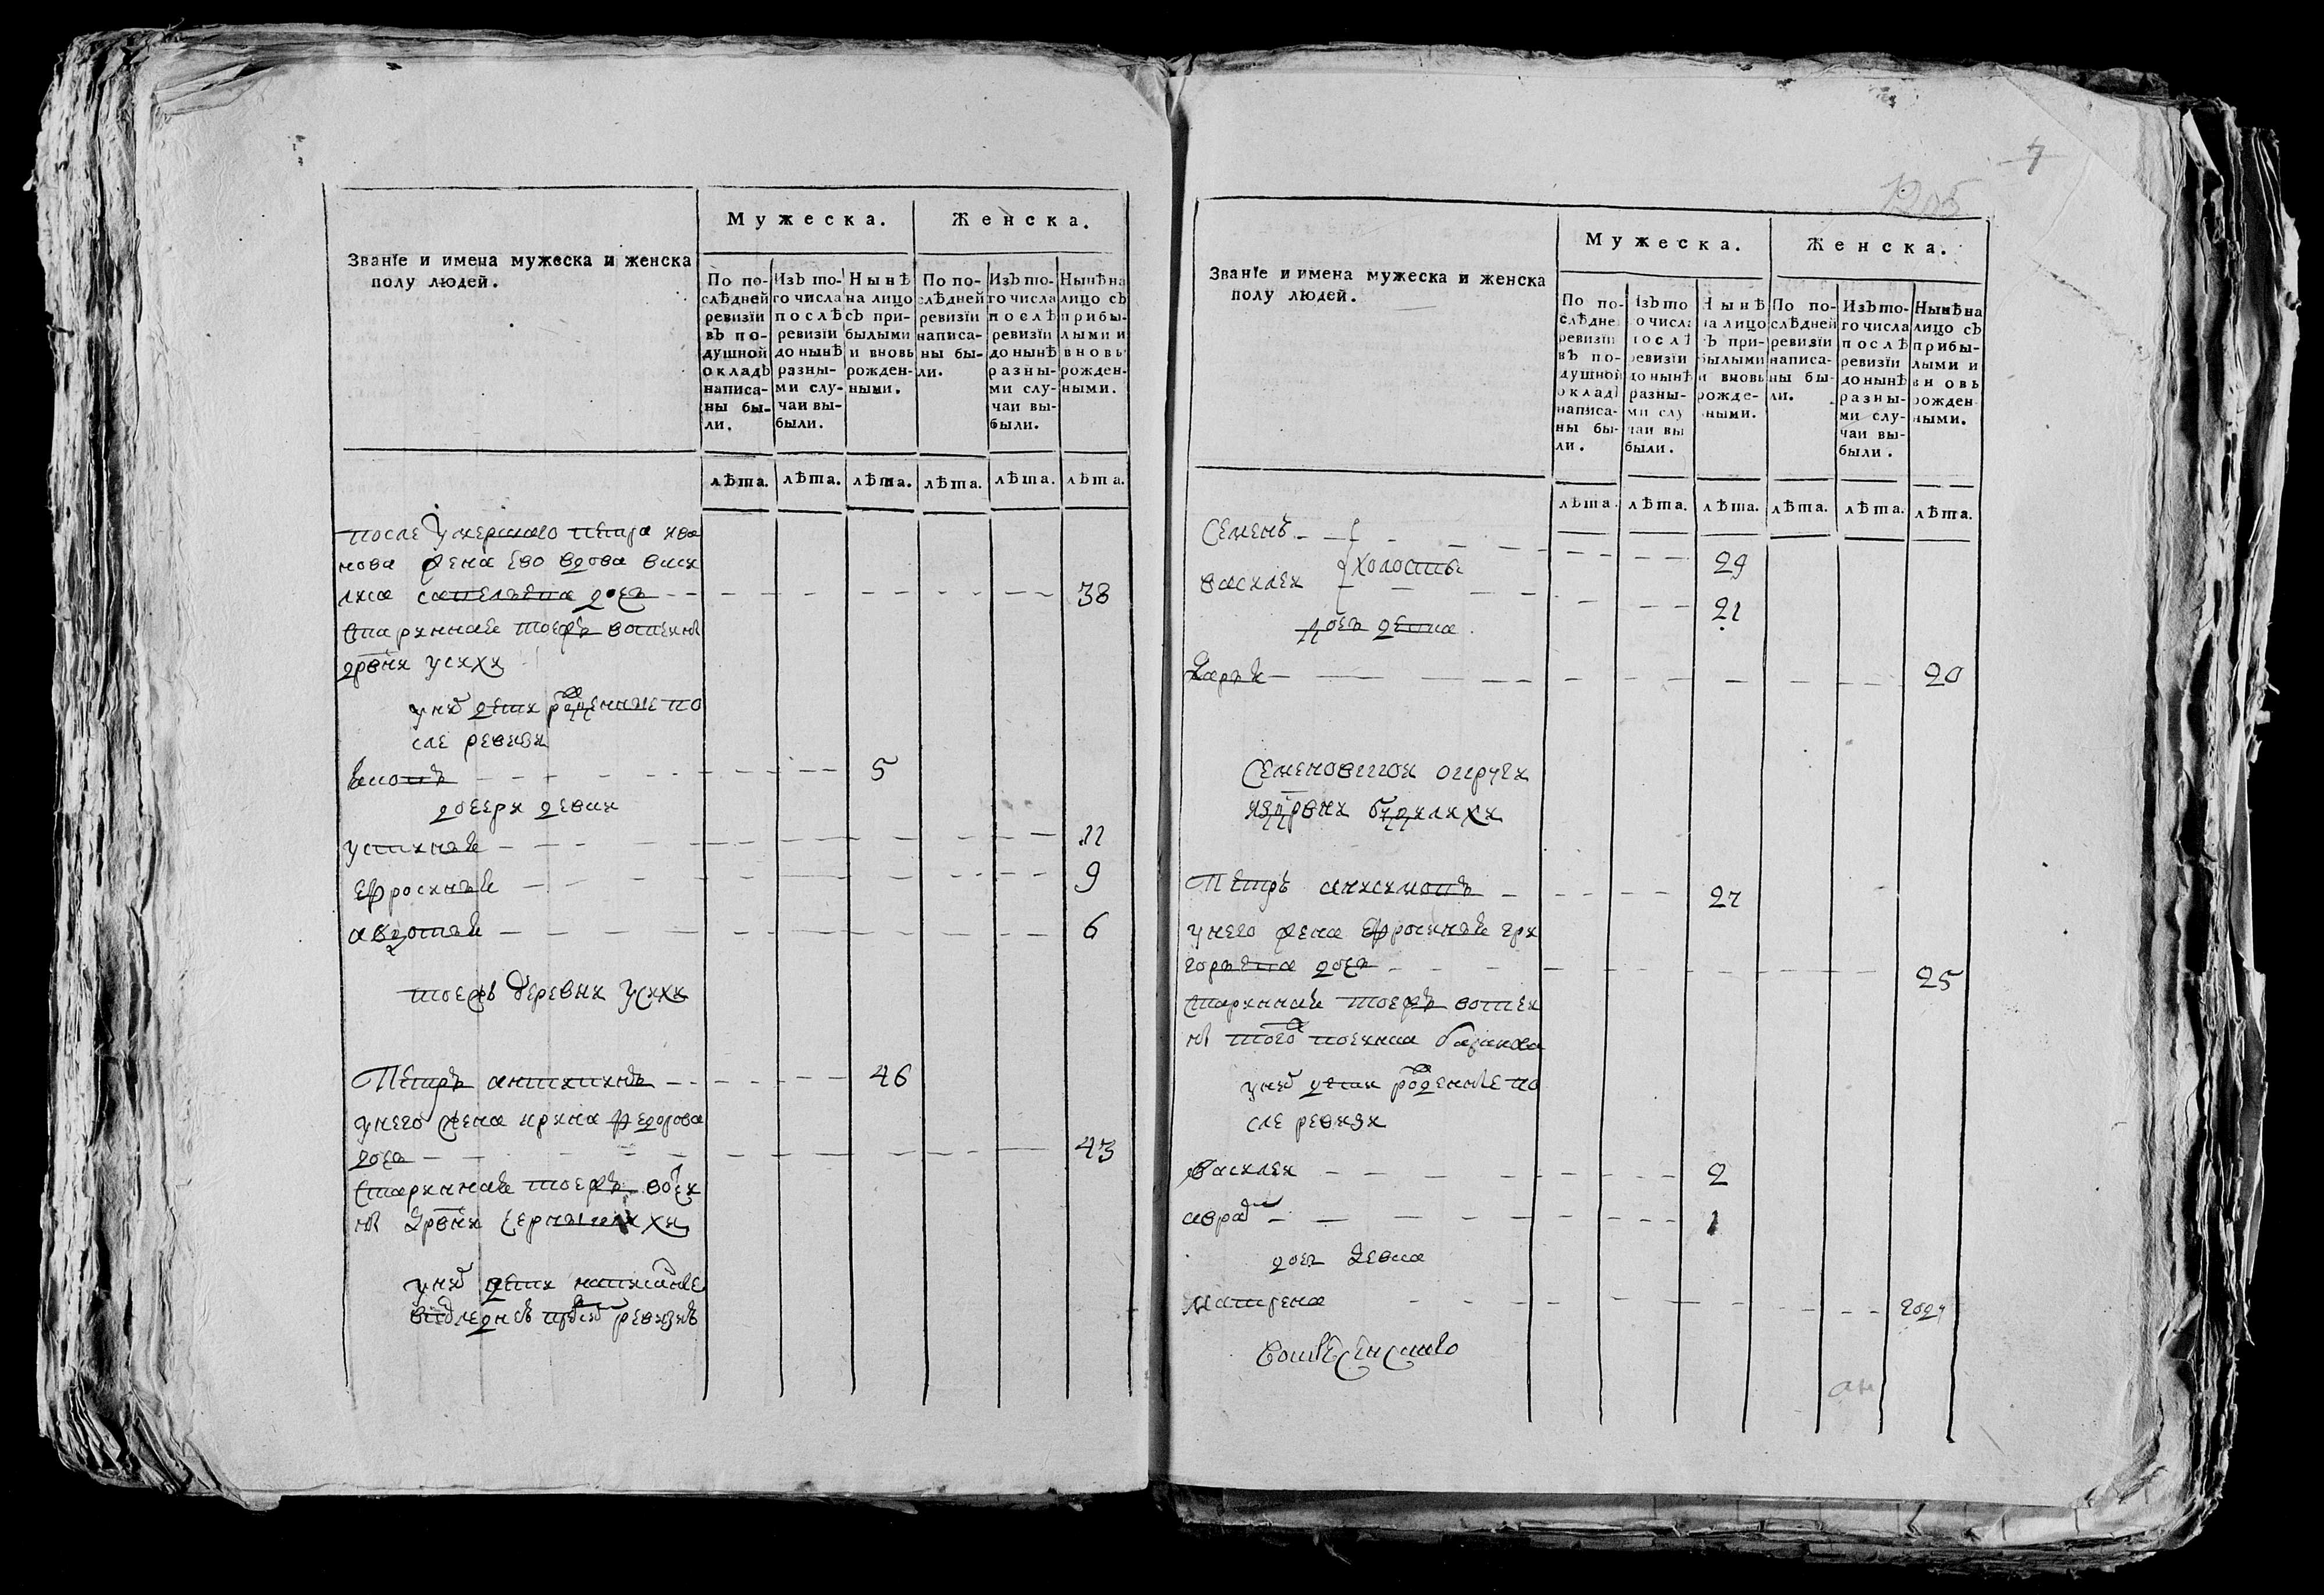 Званїе и имена мужеска и женска
полу людей.
Мужеска.
Женска.
По по-
слѣдней
ревизїи
въ по-
душной
окладъ
написа-
ны бы-
ли.
Изъ то-
го числа
послѣ
ревизїи
до нынѣ
разны-
ми слу-
чаи вы-
были.
Нынѣ
на лицо
съ при-
былыми
и вновь
рожден-
ными.
По по-
слѣдней
ревизїи
написа-
ны бы-
ли.
Изъ то-
го числа
послѣ
ревизїи
до нынѣ
разны-
ми слу-
чаи вы-
были.
Нынѣ на
лицо съ
прибы-
лыми и
вновь
рожден-
ными.
лѣта. лѣта. лѣта. лѣта. лѣта. лѣта.
после умершаго петра ива
нова жена ево вдова васи
лиса савельева дочь 38
старинная тоежъ вотчины
дрвни усихи
унихъ дети рожденные по
сле ревизи
5
дочери девки
устинья 11
ефросинья 9
авдотья 6
тоежъ деревни усихи
Петръ антипинъ 46
унего жена ирина федорова
дочь 43
старинная тоежъ вотчи
ны дрвни
унихъ дети написанные
впоследней предъ сей ревизии
4
1205
Званїе и имена мужеска и женска
полу людей.
Мужеска.
Женска.
По по-
слѣдне
ревизїи
въ по-
душной
окладъ
написа-
ны бы-
ли.
Изъ то
го числа
послѣ
ревизїи
до нынѣ
разны-
ми слу
чаи вы
были.
Нынѣ
на лицо
съ при-
былыми
и вновь
рожде-
ными.
По по-
слѣдней
ревизїи
написа-
ны бы-
ли.
Изъ то-
го числа
послѣ
ревизїи
до нынѣ
разны-
ми слу-
чаи вы-
были.
Нынѣ на
лицо съ
прибы-
лыми и
вновь
рожден-
ными.
лѣта. лѣта. лѣта. лѣта. лѣта. лѣта.
Семенъ 29
холосты
василеи 21
дочь девка
дарья 20
Семеновской
издрвни будилихи
Петръ анисимовъ 27
унего жена ефросинья гри
горьева дочь 25
старинная тоежъ вотчи
ны тогожъ
унихъ дети рожденные по
сле ревизи
василеи 2
1
дочь девка
матрена году